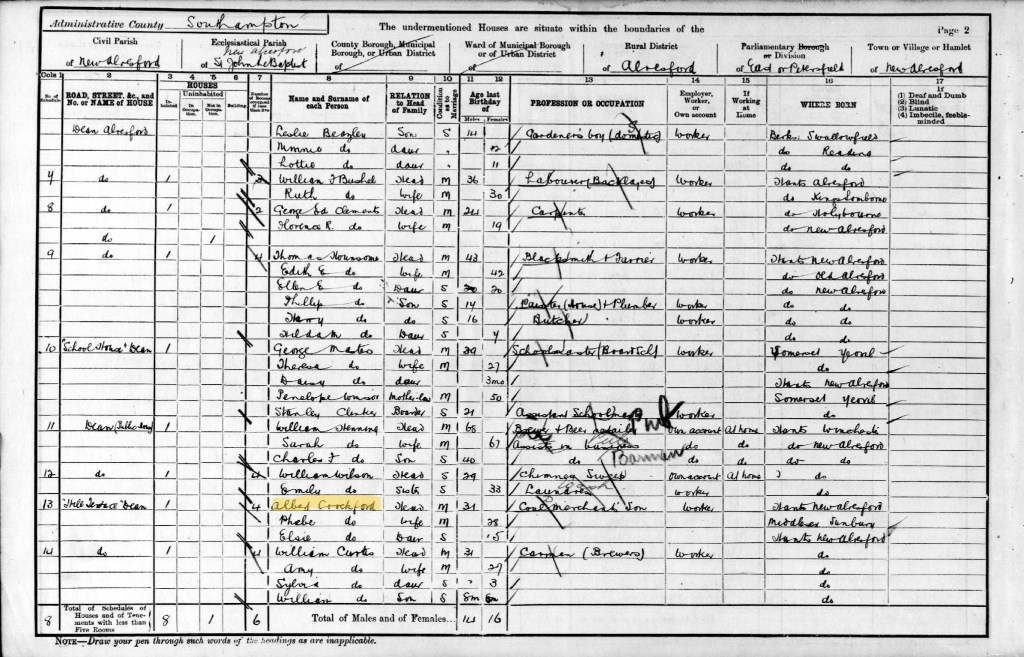 Administrative County Southampton
The undermentioned Houses are situate within the boundaries of the
Page 2
Civil Parish
of New Alresford
Ecclesiastical Parish
New Alresford
of St John the Baptist
County Borough, Municipal Borough, or Urban District
of
Ward of Municipal Borough or of Urban District
of
Rural District
of Alresford
Parliamentary Borough or Division
of East or Petersfield
Town or Village or Hamlet
of New Alresford
Cols 1 2 3 4 5 6 7 8 9 10 11 12 13 14 15 16 17
No. of Schedule
ROAD, STREET, &c., and No. or NAME of HOUSE
HOUSES
Inhabited
Uninhabited
In Occupation
Not in Occupation
Building
Name and Surname of each Person
RELATION to Head of Family
Condition as to Marriage
Age last Birthday of
Males Females
PROFESSION OR OCCUPATION
Employer, Worker, or Own account
If Working at Home
WHERE BORN
If
(1) Deaf and Dumb
(2) Blind
(3) Lunatic
(4) Imbecile, feeble-minded
Dean Alresford Leslie Son S 14 Gardener's boy (domestic) worker Berks Swallowfield
do daur 12 do Reading
Lottie do daur 11 do do
4 do 1 3 William Bushel Head M 36 Labourer worker Hants Alresford
Ruth do wife M 30 do
8 do 1 2 George Ed Clements Head M 24 Carpenter worker do Holybourne
Florence R. do wife M 19 do New Alresford
do 1
9 do 1 4 Thomas Head M 43 Blacksmith + Farrier worker Hants New Alresford
Edith E do wife M 42 do Old Alresford
Ellen E do Daur S 20 20 do New Alresford
Phillip do Son S 14 Painter (House) + Plumber worker do do
Harry do do S 16 Butcher worker do do
Hilda M do Daur S 4 do do
10 "School House" Dean 1 George Masters Head M 29 Schoolmaster (Board Sch) worker Somerset Yeovil
Theresa do wife M 27 do
Daisy do daur 3mo Hants New Alresford
Penelope Mother-law M 50 Somerset Yeovil
Stanley Boarder S 21 Assistant worker do
11 Dean 1 William Head M 65 Brewer + Beer retailer Pub own account At home Hants Winchester
Sarah do wife M 67 Assists in business do do do New Alresford
Charles F do Son S 40 do do Barman do do do do
12 do 1 4 William Wilson Head S 29 Chimney Sweep own account At home do
Emily do Sister S 33 Laundress worker do
13 "Hill Terrace" Dean 1 4 Albert Crockford Head M 31 Coal Merchants Son worker Hants New Alresford
Phebe do wife M 28 Middlesex Sunbury
Elsie do Daur S 5 Hants New Alresford
14 do 1 4 William Curtis Head M 31 Carman (Brewers) worker do
Amy do wife M 27 do
Sylvia do daur S 3 do
William do Son S 8m do
8 Total of Schedules of Houses and of Tenements with less than Five Rooms 8 1 6 Total of Males and of Females... 14 16
NOTE—Draw your pen through such words of the headings as are inapplicable.